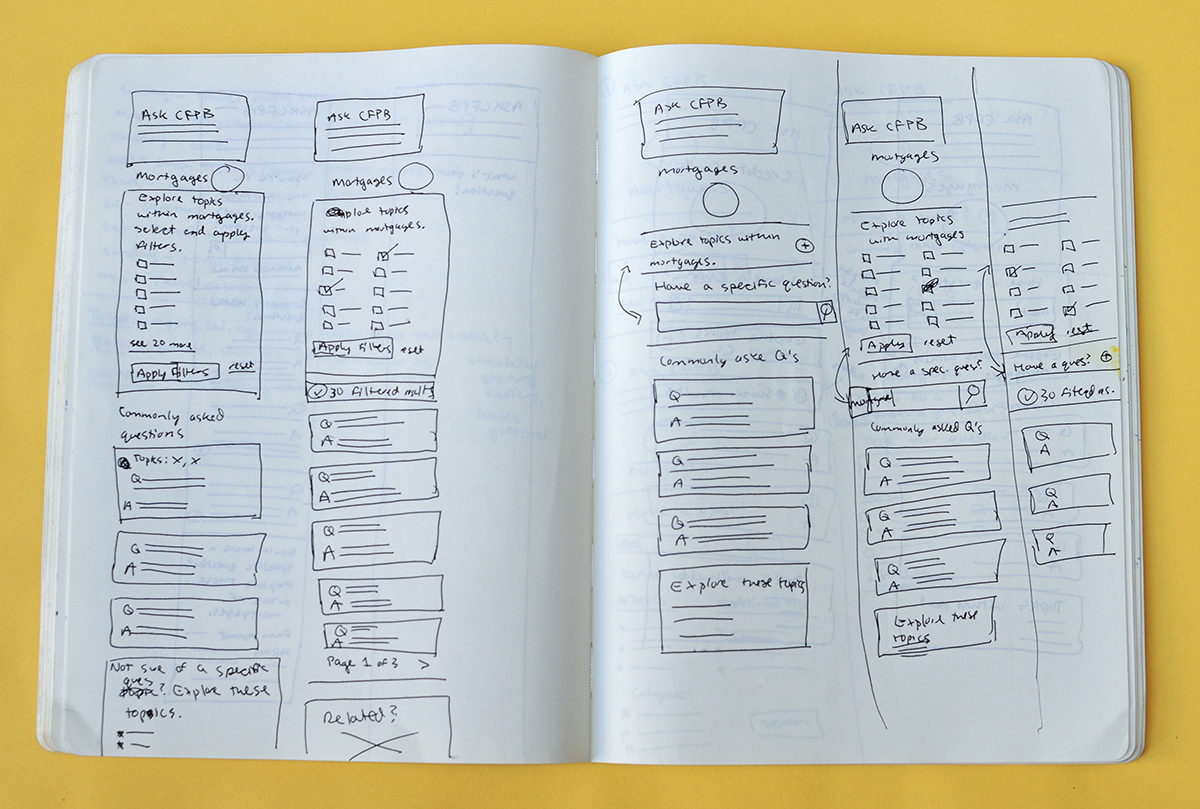 Ask CFPB
Mortgages
Explore topics
within mortgages.
select and apply
filters.
see 20 more
Apply Filters reset
Commonly asked
questions
Topics: x, x
Q
A
Q
A
Q
A
Not sure of a specific
ques
topic? Explore these
topics.
Ask CFPB
Mortgages
Explore topics
within mortgages.
Apply Filters reset
30 Filtered
Q
A
Q
A
Q
A
Q
A
Q
A
Page 1 of 3 >
Related?
Ask CFPB
mortgages
Explore topics within
mortgages.
Have a specific question?
Commonly aske Q's
Q
A
Q
A
Q
A
Explore these topics
Ask CFPB
mortgages
Explore topics
with mortgages
Apply reset
Have a spec. ques?
Commonly asked Q's
Q
A
Q
A
Q
A
Explore these
topics
Apply reset
Have a ques?
30 filtered
Q
A
Q
A
Q
A